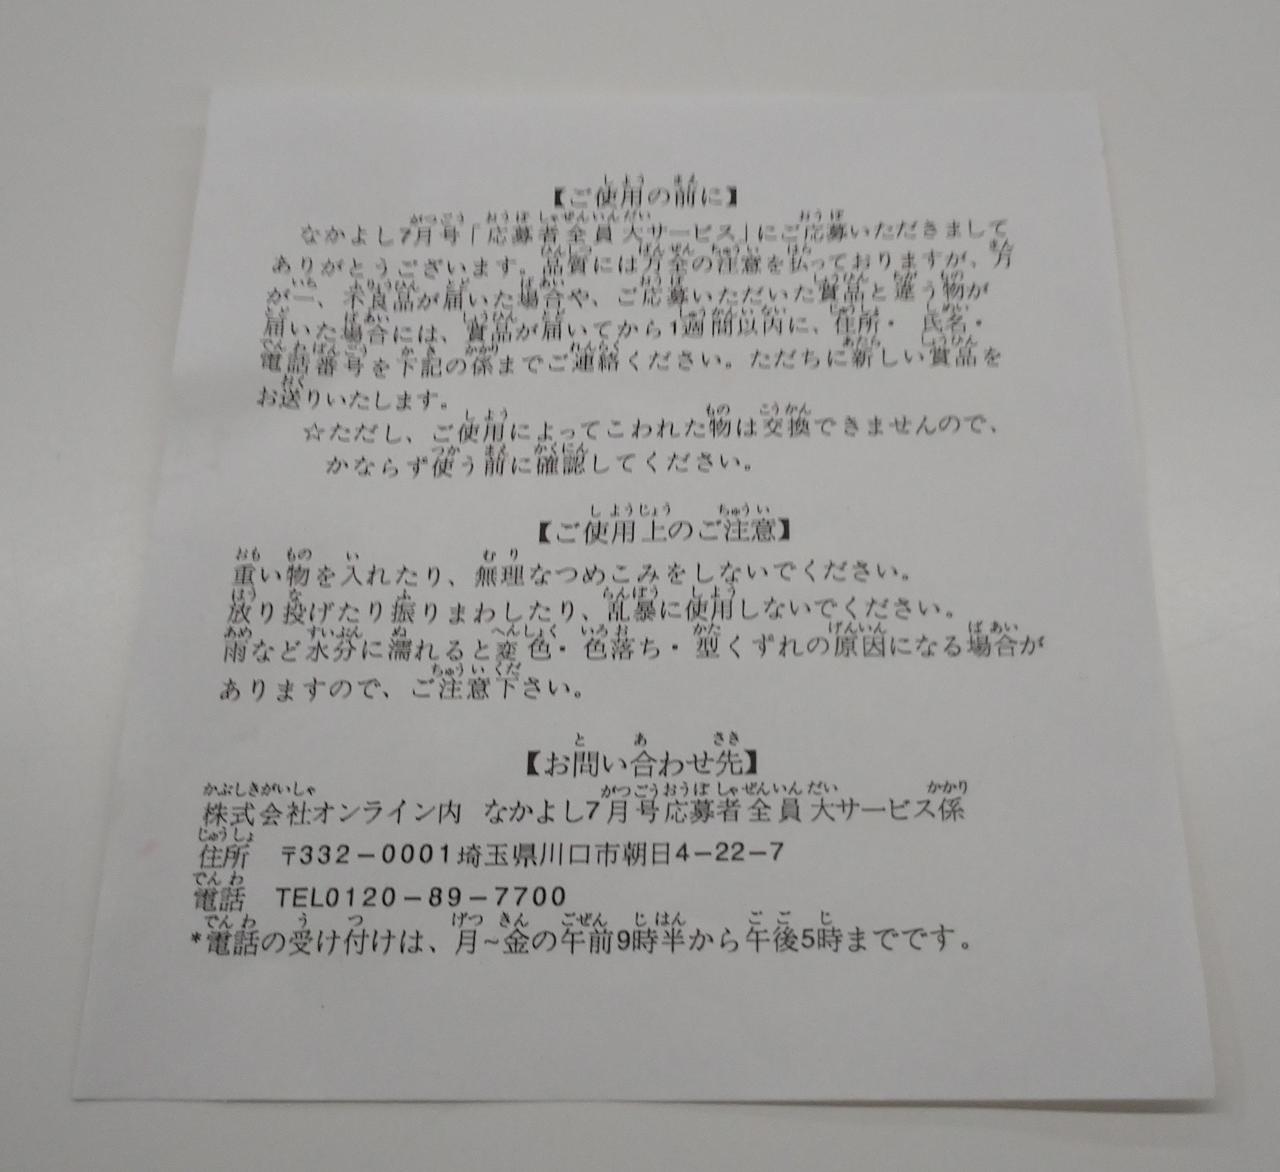 【ご使用の前に】
なかよし7月号「応募者全員大サービス」にご応募いただきまして
ありがとうございます。品質には万全の注意を払っておりますが、万
が一、不良品が届いた場合や、ご応募いただいた賞品と違う物が
届いた場合には、賞品が届いてから1週間以内に、住所・氏名・
電話番号を下記の係までご連絡ください。ただちに新しい賞品を
お送りいたします。
☆ただし、ご使用によってこわれた物は交換できませんので、
かならず使う前に確認してください。
【ご使用上のご注意】
重い物を入れたり、無理なつめこみをしないでください。
放り投げたり振りまわしたり、乱暴に使用しないでください。
雨など水分に濡れると変色・色落ち・型くずれの原因になる場合が
ありますので、ご注意下さい。
【お問い合わせ先】
株式会社オンライン内 なかよし7月号応募者全員大サービス係
住所 〒332-0001埼玉県川口市朝日4-22-7
電話 TEL0120-89-7700
*電話の受け付けは、月~金の午前9時半から午後5時までです。